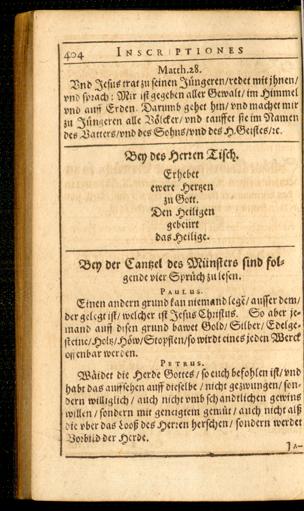 404 INSCRIPTIONES
Matth.28.
Vnd Jesus trat zu seinen Jüngeren/redet mit jhnen/
vnd sprach: Mir ist gegeben aller Gewalt/im Himmel
vnd auff Erden. Darumb gehet hin/vnd machet mir
zu Jüngeren alle Völcker/vnd tauffet sie im Namen
des Vatters/vnd des Sohns/vnd des H.Geistes/ꝛc.
Bey des Herren Tisch.
Erhebet
ewere Hertzen
zu Gott.
Den Heiligen
gebürt
das Heilige.
Bey der Cantzel des Münsters sind fol-
gende vier Sprüch zu lesen.
PAULUS.
Einen andern grund kan niemand legẽ/ausser dem/
der gelegt ist/welcher ist Jesus Christus. So aber je-
mand auff disen grund bawet Gold/Silber/Edelge-
steine/Holz/Höw/Stopflen/so wirdt eines jeden Werck
offenbar werden.
PETRUS.
Wäidet die Herde Gottes/so euch befohlen ist/vnd
habt das auffsehen auff dieselbe/nicht gezwungen/son-
dern williglich/auch nicht vmb schandtlichen gewins
willen/sondern mit geneigtem gemüt/auch nicht alß
die vber das Looß des Herren herschen/sondern werdet
Vorbild der Herde.
Ja-